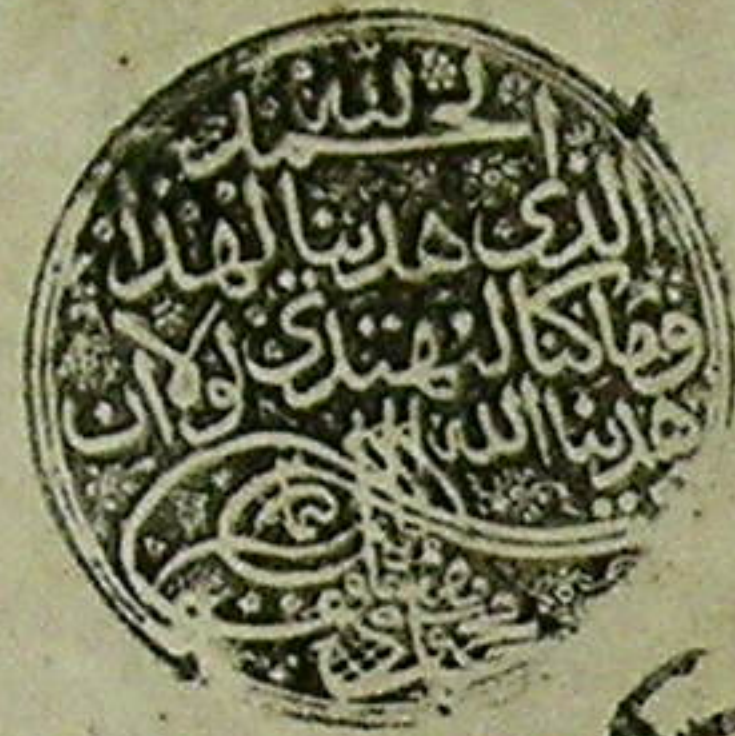 الحمد لله
الذى هدينا لهذا
فما كنا لنهتدي لولا ان
هدينا الله